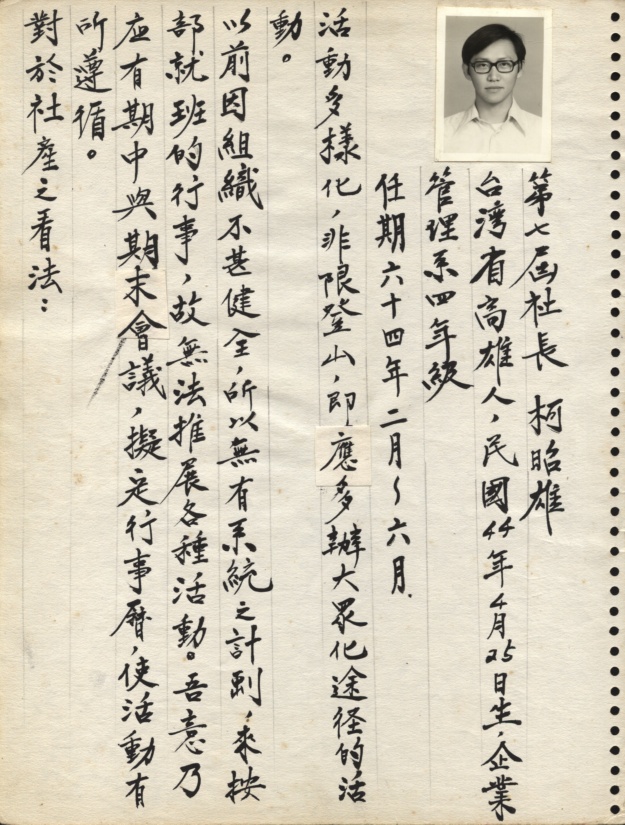 第七屆社長 柯昭雄
台湾省高雄人，民國44年4月25日生，企業
管理系四年級
任期六十四年二月～六月.
活動多樣化，非限登山，即應多辦大眾化途径的活
動。
以前因組織不甚健全，所以無有系統之計劃，來按
部就班的行事，故無法推展各種活動。吾意乃
应有期中與期末會議，擬定行事曆，使活動有
所遵循。
對於社產之看法：